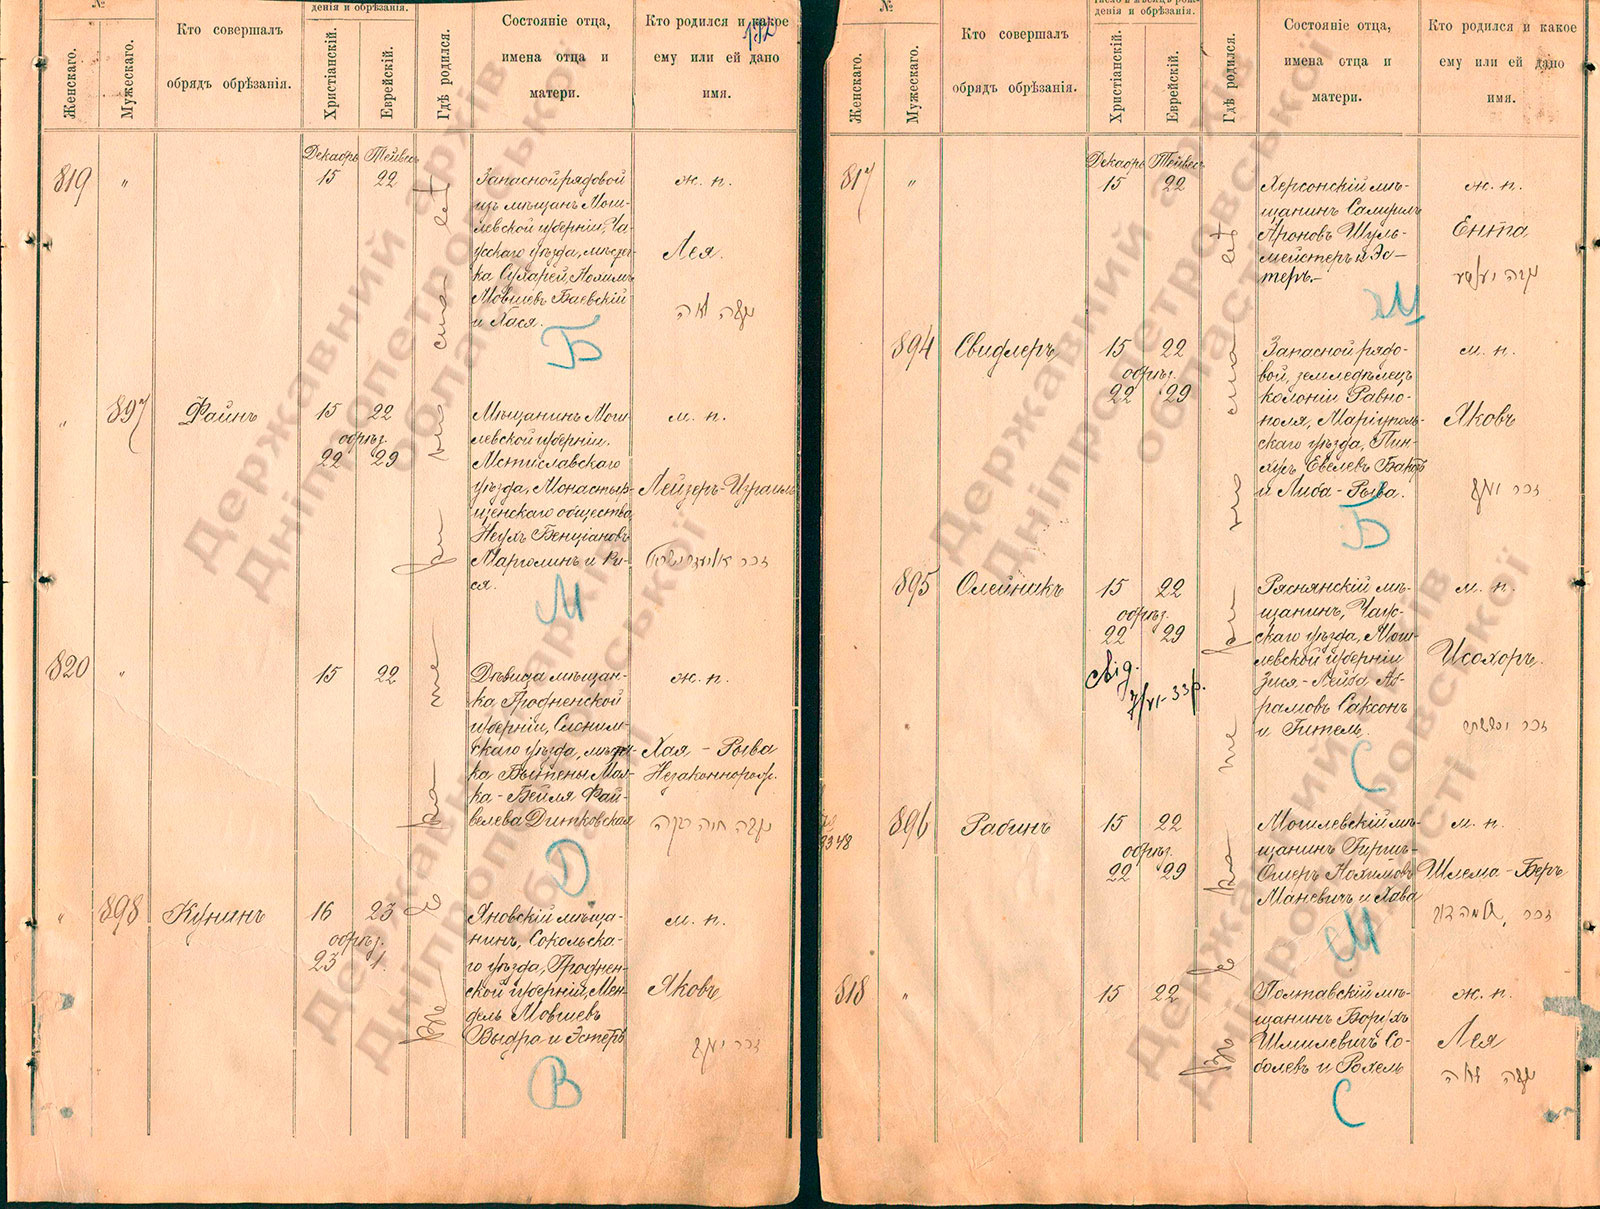 №
Женскаго.
Мужескаго.
Кто совершалъ
обрядъ обрѣзанія.
денія и обрѣзанія.
Христіанскій.
Еврейскій.
Гдѣ родился.
Состояніе отца,
имена отца и
матери.
Кто родился и какое
ему или ей дано
имя.
Декабрь Тейвесъ
819 " 15 22
Запасной рядовой
изъ мѣщанъ Моги-
левской губерніи, Ча-
усскаго уѣзда, мѣстеч-
ка Сухарей, Нохимъ
Мовшевъ Баевскій
и Хася.
ж. п.
Лея.
נקבה לאה
Б
" 897 Файнъ 15 22
обрѣз.
22 29
Мѣщанинъ Моги-
левской губерніи.
Мстиславскаго
уѣзда, Монастыр-
щенскаго общества,
Бенціановъ
Марголинъ и Ри-
ся.
м. п.
Лейзеръ-Израиль
М
820 " 15 22
Дѣвица мѣщан-
ка Гродненской
губерніи, Слоним-
скаго уѣзда, мѣстеч-
ка Бытены Мал-
ка-Бейля Фай-
велева Дитковская
ж. п.
Хая-Рыва
Незаконнорожд.
נקבה חיה ריבה
Д
" 898 Кунинъ 16 23
обрѣз.
23 1.
Яновскій мѣща-
нинъ, Сокольска-
го уѣзда, Гроднен-
ской губерніи, Мен-
дель Мовшевъ
Выдра и Эстеръ
м. п.
Яковъ
זכר יעקב
В
№
Женскаго.
Мужескаго.
Кто совершалъ
обрядъ обрѣзанія.
денія и обрѣзанія.
Христіанскій.
Еврейскій.
Гдѣ родился.
Состояніе отца,
имена отца и
матери.
Кто родился и какое
ему или ей дано
имя.
Декабрь Тейвесъ
817 " 15 22
Херсонскій мѣ-
щанинъ Самуилъ
Ароновъ Шуль-
мейстеръ и Эс-
теръ.
ж. п.
Ента
נקבה יענטע
Ш
894 Свидлеръ 15 22
обрѣз.
22 29
Запасной рядо-
вой, земледѣлецъ
колоніи Равно-
поля, Маріуполь-
скаго уѣзда, Пин-
хусъ Евелевъ
и Либа-Рыва.
м. п.
Яковъ
זכר יעקב
Б
895 Олейникъ 15 22
обрѣз.
22 29
свід.
7/VI-33р.
Ряснянскій мѣ-
щанинъ, Чаус-
скаго уѣзда, Моги-
левской губерніи
Зися-Лейба Аб-
рамовъ Саксонъ
и Гитель.
м. п.
Исохоръ.
זכר יששכר
С
896 Рабинъ 15 22
обрѣз.
22 29
Могилевскій мѣ-
щанинъ Гиршъ-
Нохимовъ
Маневичъ и Хава
м. п.
Шлема-Беръ
М
818 " 15 22
Полтавскій мѣ-
щанинъ Борухъ
Шмилевичъ Со-
болевъ и Рохель
ж. п.
Лея
נקבה לאה
С
Державний архів
Дніпропетровської
області